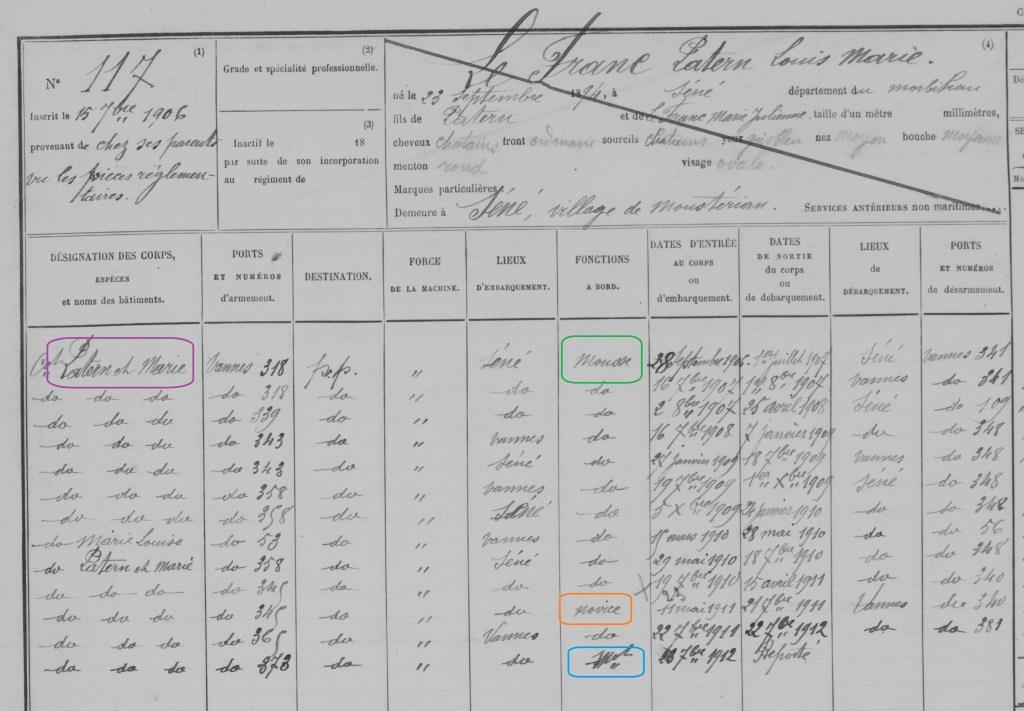 (1)
Nº 117
Inscrit le 15 7bre 1906
provenant de chez ses parents
vu les pièces réglemen-
taires.
(2)
Grade et spécialité professionnelle.
(3)
Inactif le 18
par suite de son incorporation
au régiment de
(4)
Le Franc Patern Louis Marie.
né le 23 septembre 1894, à Séné département du morbihan
fils de Patern et de Le Franc Marie Julienne. taille d'un mètre millimètres,
cheveux chatains front ordinaire sourcils chatains yeux gris bleu nez moyen bouche moyenne
menton rond visage ovale.
Marques particulières :
Demeure à Séné, village de Moustérian. SERVICES ANTÉRIEURS non maritimes.....
DÉSIGNATION DES CORPS, ESPÈCES et noms des bâtiments.
PORTS ET NUMÉROS d'armement.
DESTINATION.
FORCE DE LA MACHINE.
LIEUX D'EMBARQUEMENT.
FONCTIONS A BORD.
DATES D'ENTRÉE AU CORPS ou d'embarquement.
DATES DE SORTIE du corps ou de débarquement.
LIEUX de DÉBARQUEMENT.
PORTS et NUMÉROS de désarmement.
Patern et Marie Vannes 318 p.p. " Séné Mousse 28 Septembre 1906 1er Juillet 1907 Séné Vannes 341
do do do do 318 do " do do 16 7bre 1907 1er 8bre 1907 Vannes do 341
do do do do 339 do " do do 2 8bre 1907 25 avril 1908 Séné do 109
do do do do 343 do " Vannes do 16 7bre 1908 7 janvier 1909 do do 348
do do do do 343 do " Séné do 27 janvier 1909 18 7bre 1909 Vannes do 348
do do do do 358 do " Vannes do 19 7bre 1909 1er Xbre 1909 Séné do 348
do do do do 358 do " Séné do 5 Xbre 1909 24 janvier 1910 do do 348
do Marie Louise do 53 do " Vannes do 15 mars 1910 28 mai 1910 do do 56
do Patern et Marie do 358 do " Séné do 29 mai 1910 18 7bre 1910 do do 348
do do do do 345 do " do do 19 7bre 1910 15 avril 1911 do do 340
do do do do 345 do " do novice 11 mai 1911 21 7bre 1911 Vannes do 340
do do do do 365 do " Vannes do 22 7bre 1911 22 7bre 1912 do do 381
do do do do 373 do " do Mot 23 7bre 1912 Reporté